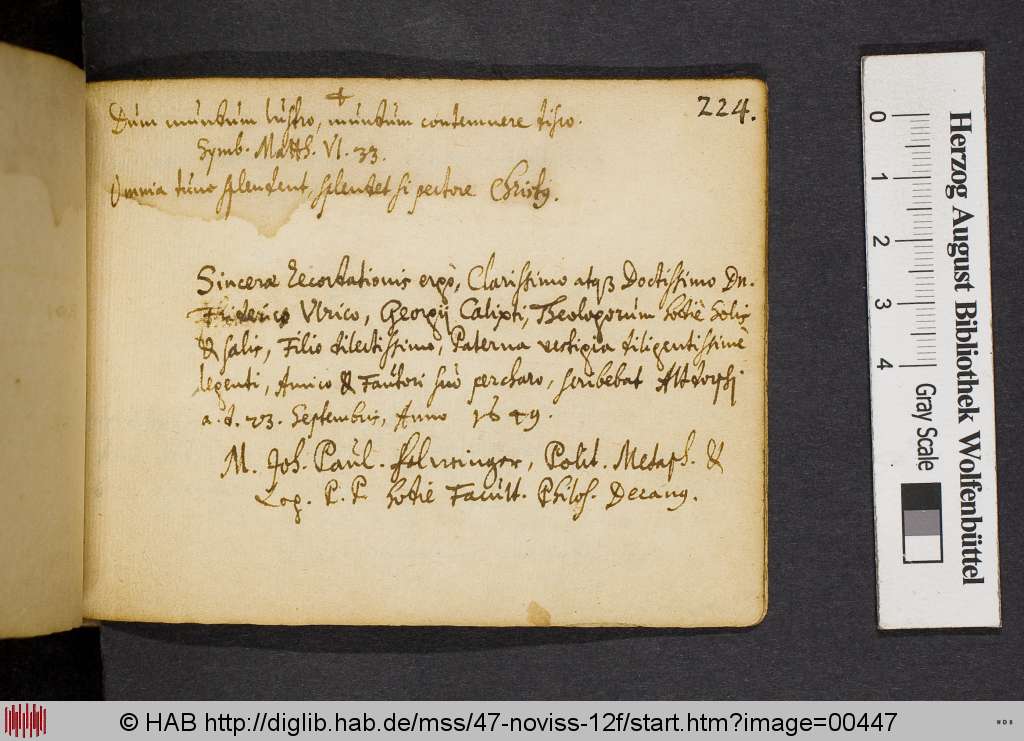 224.
Dum mundum lustro, mundum contemnere disco.
Symb. Matth. VI. 33.
Omnia tunc splendent, splendet si pectore Christ9.
Sinceræ recordationis ergò, Clarissimo atq3 Doctissimo Dn.
Friderico Vlrico, Georgij Calixti, Theologorùm hodiè Solis
& salis, Filio dilectissimo, Paterna vestigia diligentissimè
legenti, Amico & Faùtori suo percharo, scribebat Altdorfij
a. d. 23. Septembris, Anno 1649.
M. Joh. Paùl. Felwinger, Polit. Metaph. &
Log. P. P. hodiè Facult. Philos. Decan9.
Herzog August Bibliothek Wolfenbüttel
0 1 2 3 4 Gray Scale
© HAB http://diglib.hab.de/mss/47-noviss-12f/start.htm?image=00447